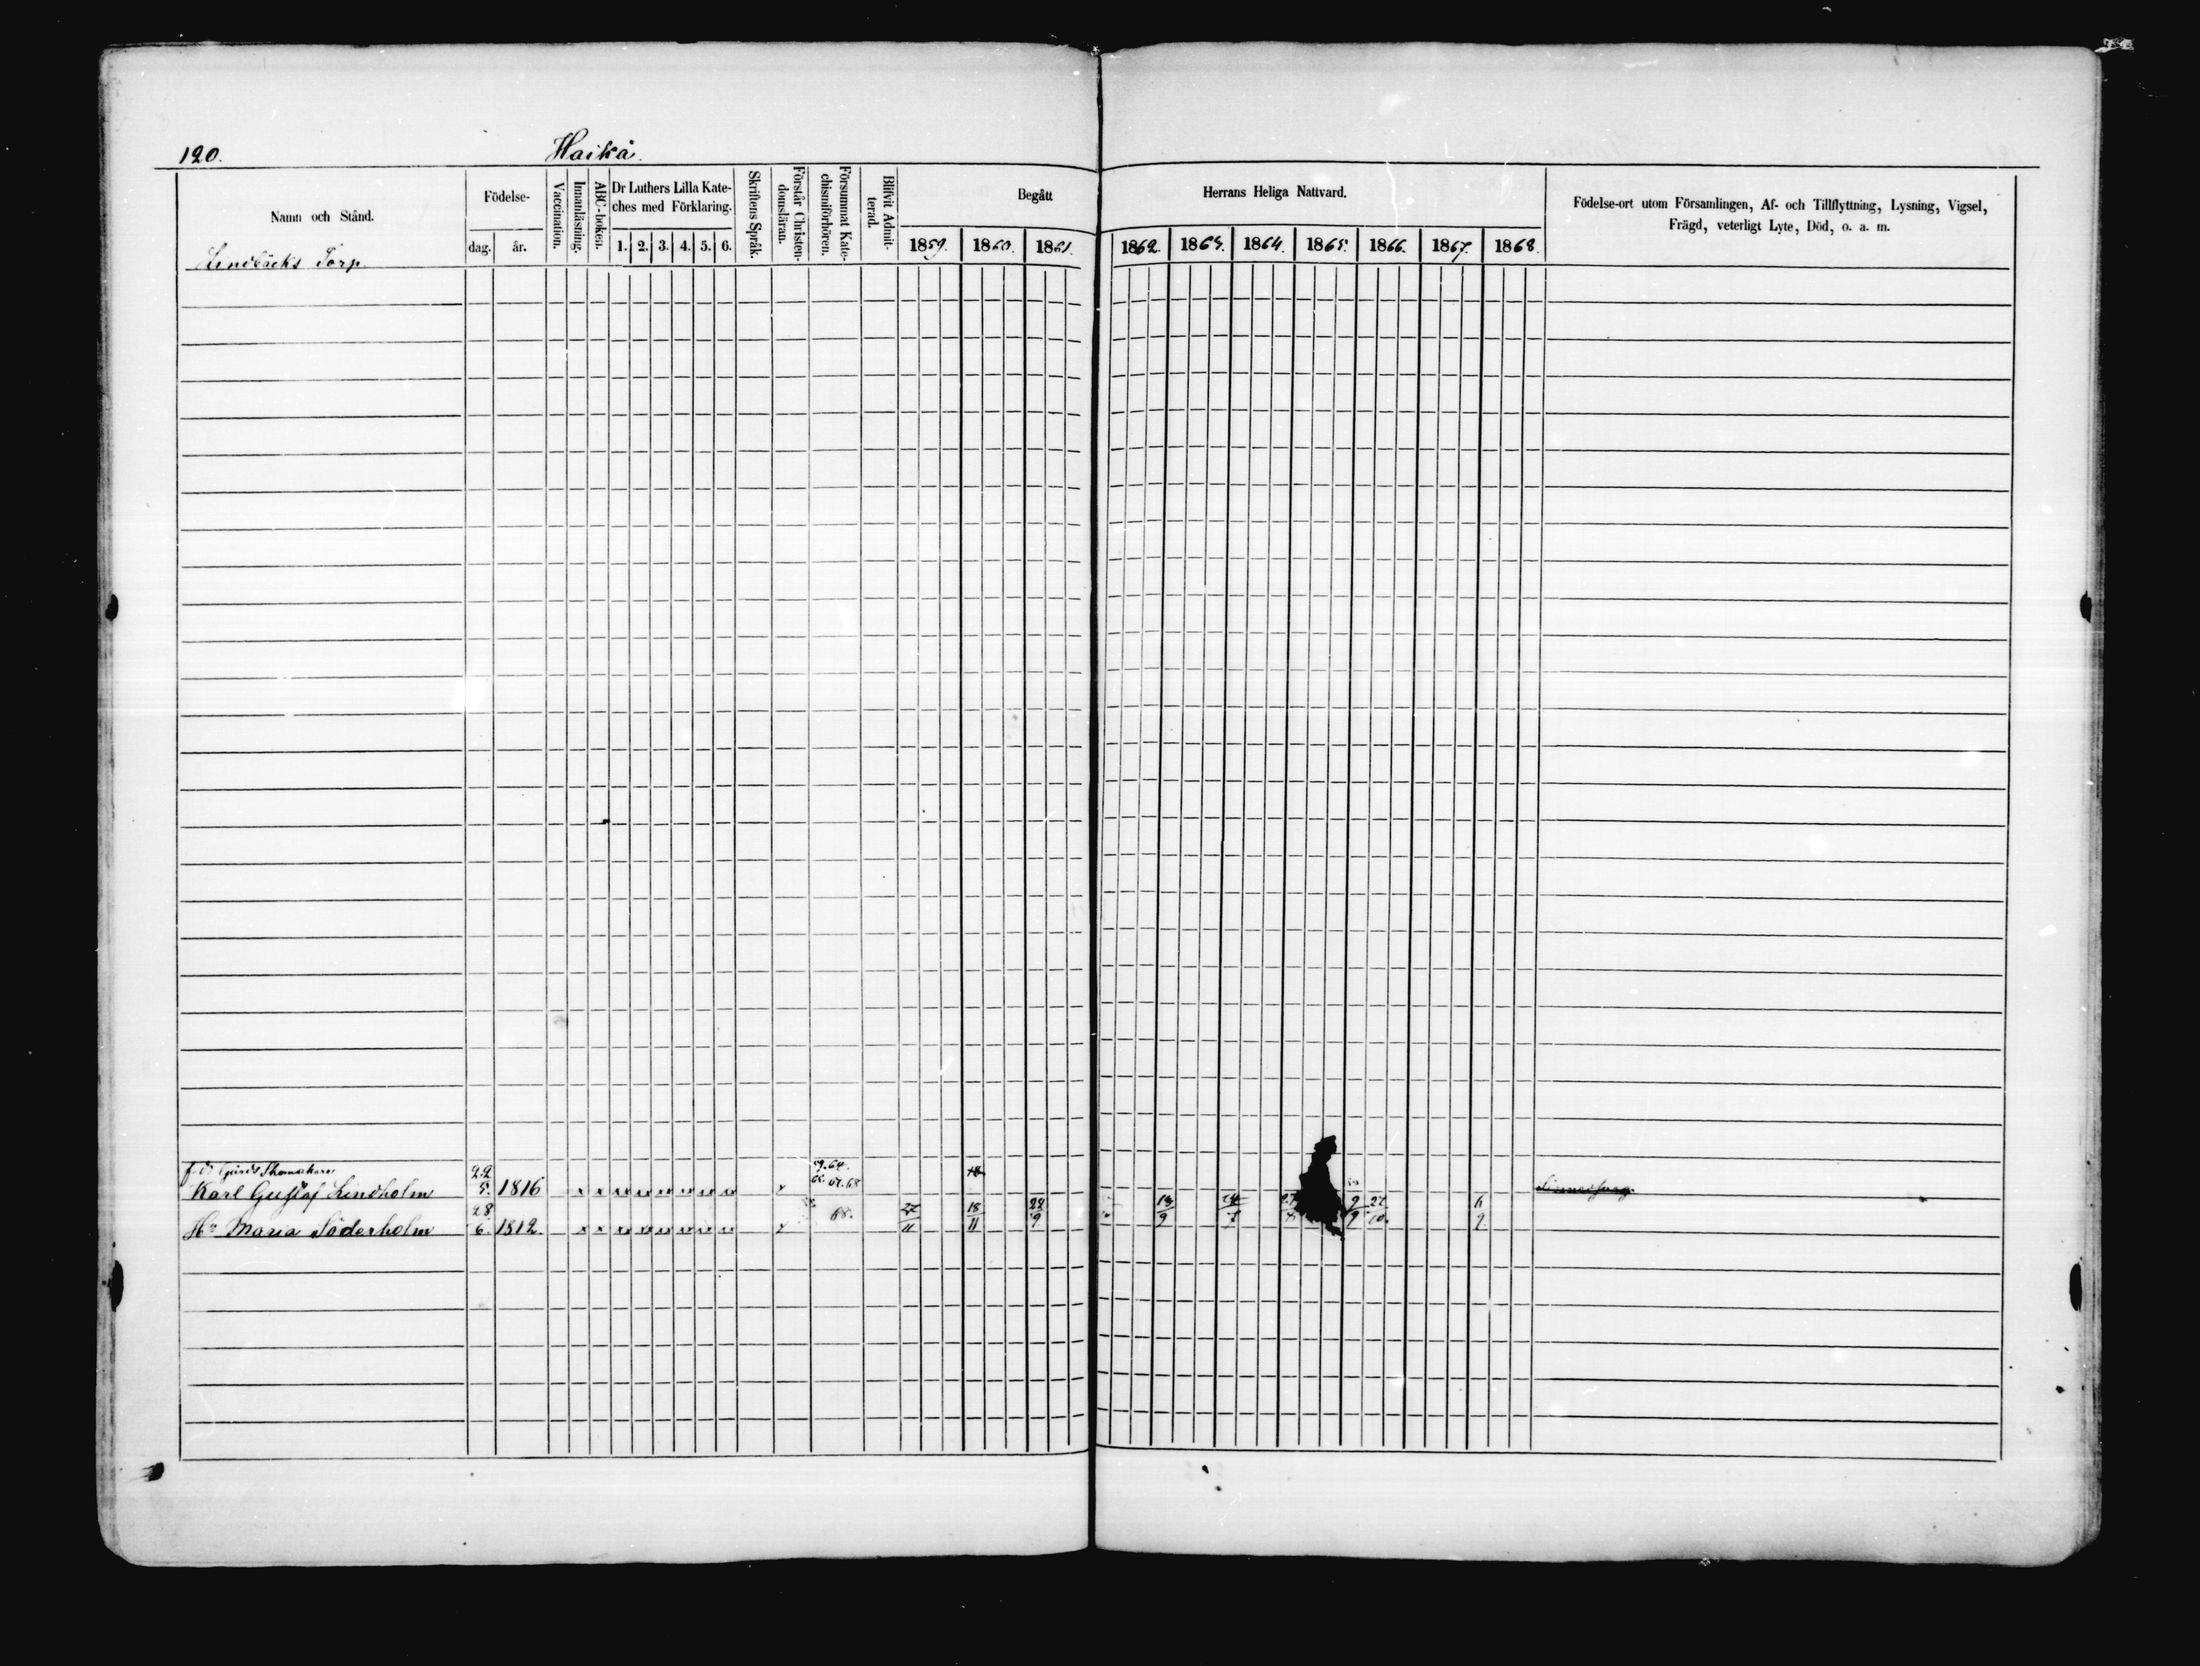 120. Haikå.
Namn och Stånd.
Födelse-
dag. år.
Vaccination.
Innanläsning.
ABC-boken.
Dr Luthers Lilla Kate-
ches med Förklaring.
1. 2. 3. 4. 5. 6.
Skriftens Språk.
Förstår Christen-
domsläran.
Försummat Kate-
chismiförhören.
Blifvit Admit-
terad.
Begått Herrans Heliga Nattvard.
1859. 1860. 1861. 1862. 1863. 1864. 1865. 1866. 1867. 1868.
Födelse-ort utom Församlingen, Af- och Tillflyttning, Lysning, Vigsel,
Frägd, veterligt Lyte, Död, o. a. m.
Lindbäcks Torp
f. d. Gårds Skomakare
Karl Gustaf Lindholm 22/5. 1816 x x
Hu Maria Söderholm 28/6. 1812. x x 68. 27/11 18/11 22/9. 13/9 9/9 6/9